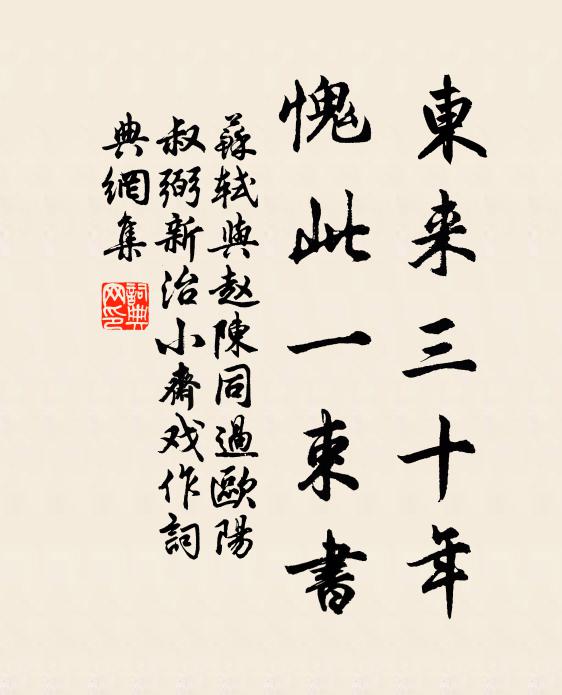 東来三十年
愧此一束書
蘇軾與趙陳同過歐陽
叔弼新治小齋戏作詞
典網集
詞典网印